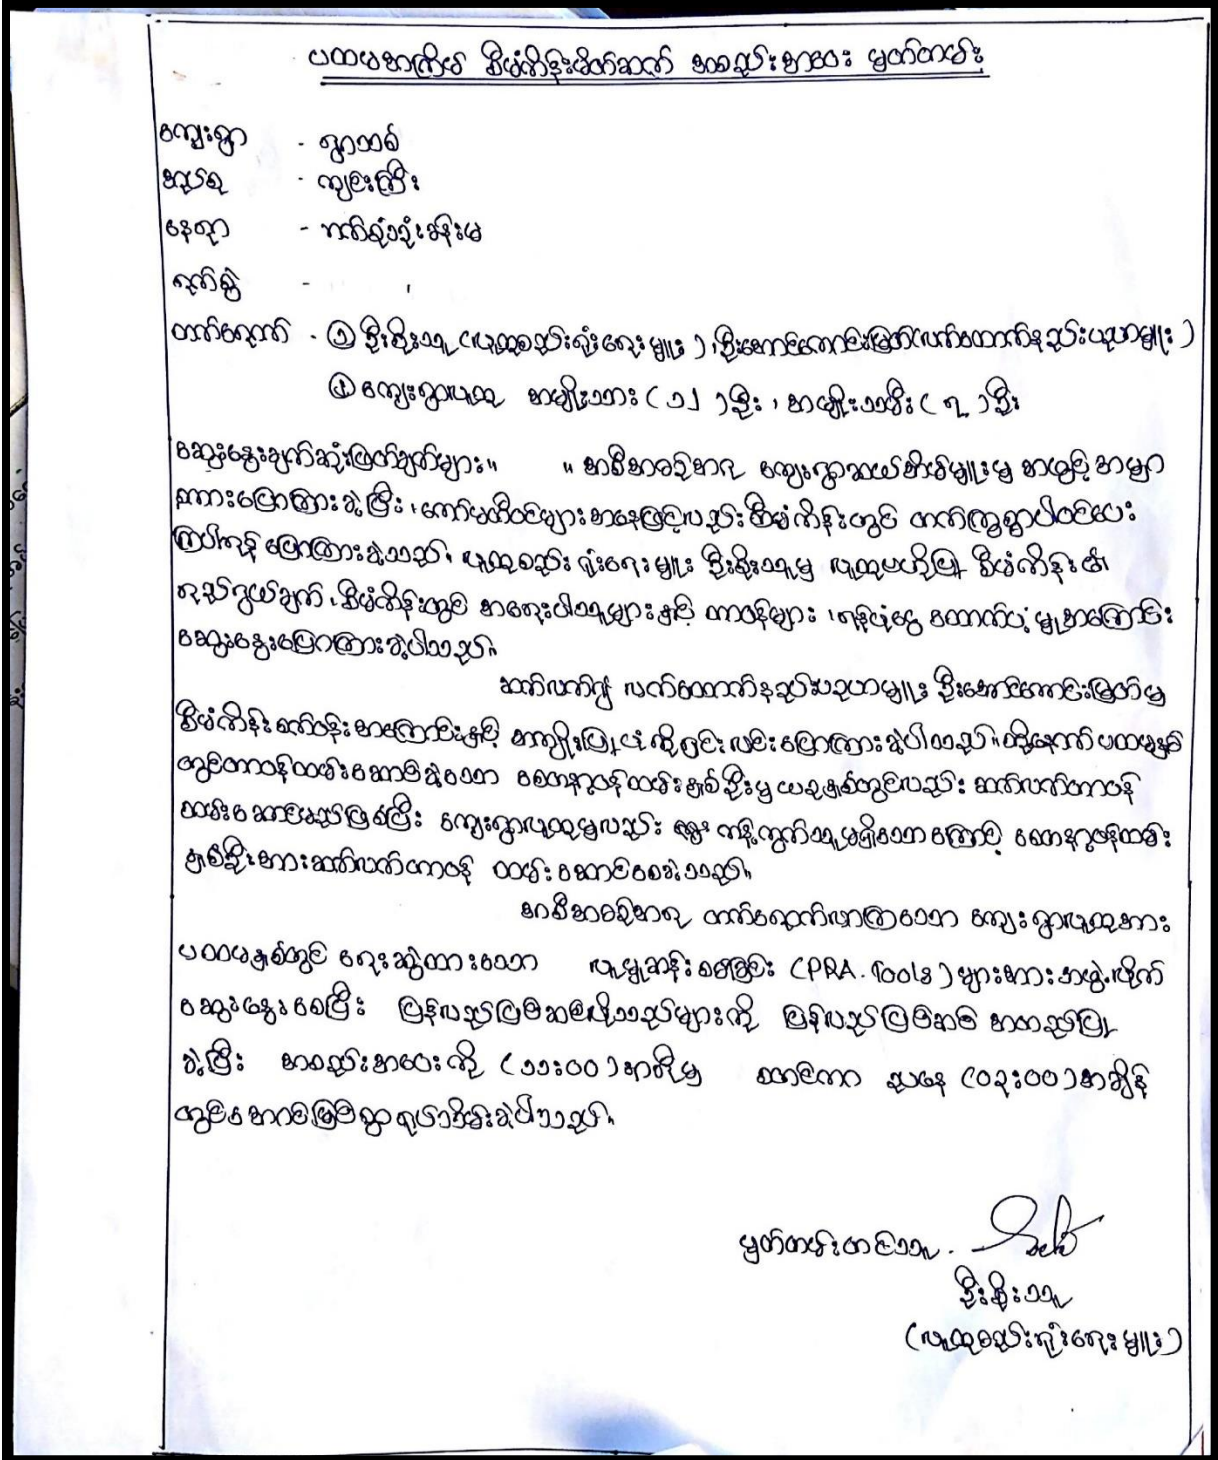 ပထမအကြိမ် စီမံကိန်းမိတ်ဆက် အစည်းအဝေး မှတ်တမ်း
ကျေးရွာ - ရွာသစ်
အုပ်စု - ကျင်းကြီး
နေရာ - ဘက်စုံသုံးခန်းမ
ရက်စွဲ -
တက်ရောက် - ① ဦးစိုးသူ (လူထုစည်းရုံးရေးမှူး) ၊ ဦးအောင်ကောင်းမြတ် (လက်ထောက်နည်းပညာမှူး)
② ကျေးရွာလူထု အမျိုးသား (၁၂) ဦး ၊ အမျိုးသမီး (၃) ဦး
ဆွေးနွေးချက်ဆုံးဖြတ်ချက်များ။ ။ အစီအစဉ်အရ ကျေးရွာဆယ်အိမ်မှူးမှ အဖွင့်အမှာ
စကားပြောကြားခဲ့ပြီး ၊ ကော်မတီဝင်များအနေဖြင့်လည်း စီမံကိန်းတွင် တက်ကြွစွာပါဝင်ပေး
ကြပါရန် ပြောကြားခဲ့သည်။ လူထုစည်းရုံးရေးမှူး ဦးစိုးသူမှ လူထုဗဟိုပြု စီမံကိန်း၏
ရည်ရွယ်ချက် ၊ စီမံကိန်းတွင် အရေးပါသူများနှင့် တာဝန်များ ၊ ရန်ပုံငွေ ထောက်ပံ့မှုအကြောင်း
ဆွေးနွေးပြောကြားခဲ့ပါသည်။
ဆက်လက်၍ လက်ထောက်နည်းပညာမှူး ဦးအောင်ကောင်းမြတ်မှ
စီမံကိန်းစက်ဝန်းအကြောင်းနှင့် အကျိုးပြုပုံကို ရှင်းလင်းပြောကြားခဲ့ပါသည်။ ထို့နောက် ပထမနှစ်
တွင်တာဝန်ထမ်းဆောင်ခဲ့သော စေတနာ့ဝန်ထမ်းနှစ်ဦးမှ ယခုနှစ်တွင်လည်း ဆက်လက်တာဝန်
ထမ်းဆောင်မည်ဖြစ်ပြီး ကျေးရွာလူထုမှလည်း ကန့်ကွက်သူမရှိသောကြောင့် စေတနာ့ဝန်ထမ်း
နှစ်ဦးအားဆက်လက်တာဝန် ထမ်းဆောင်စေခဲ့သည်။
အစီအစဉ်အရ တက်ရောက်လာကြသော ကျေးရွာလူထုအား
ပထမနှစ်တွင် ရေးဆွဲထားသော လူမှုဆန်းစစ်ခြင်း (PRA. Tools) များအား အဖွဲ့လိုက်
ဆွေးနွေးစေပြီး ပြန်လည်ပြင်ဆင်လိုသည်များကို ပြန်လည်ပြင်ဆင် အတည်ပြု
ခဲ့ပြီး အစည်းအဝေးကို (၁၁:၀၀) နာရီမှ စတင်ကာ ညနေ (၀၃:၀၀) အချိန်
တွင်အောင်မြင်စွာရုပ်သိမ်းခဲ့ပါသည်။
မှတ်တမ်းတင်သူ -
ဦးစိုးသူ
(လူထုစည်းရုံးရေးမှူး)